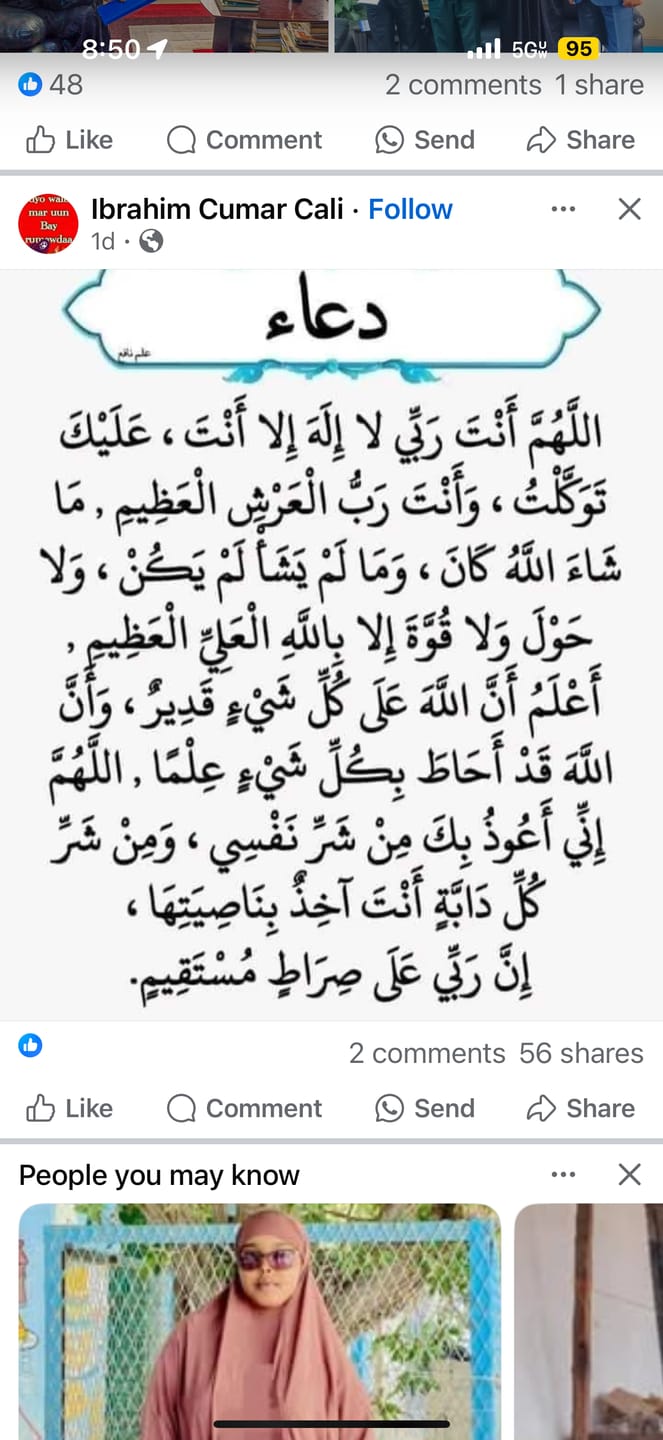 8:50
5GUW
95
48
2 comments 1 share
Like Comment Send Share
mar uun
Bay
Ibrahim Cumar Cali · Follow
1d ·
دعاء
علم نافع
اللَّهُمَّ أَنْتَ رَبِّي لا إِلَهَ إِلا أَنْتَ ، عَلَيْكَ
تَوَكَّلْتُ ، وَأَنْتَ رَبُّ الْعَرْشِ الْعَظِيمِ , مَا
شَاءَ اللَّهُ كَانَ ، وَمَا لَمْ يَشَأْ لَمْ يَكُنْ ، وَلا
حَوْلَ وَلا قُوَّةَ إِلا بِاللَّهِ الْعَلِيِّ الْعَظِيمِ ,
أَعْلَمُ أَنَّ اللَّهَ عَلَى كُلِّ شَيْءٍ قَدِيرٌ ، وَأَنَّ
اللَّهَ قَدْ أَحَاطَ بِكُلِّ شَيْءٍ عِلْمًا , اللَّهُمَّ
إِنِّي أَعُوذُ بِكَ مِنْ شَرِّ نَفْسِي ، وَمِنْ شَرِّ
كُلِّ دَابَّةٍ أَنْتَ آخِذٌ بِنَاصِيَتِهَا ،
إِنَّ رَبِّي عَلَى صِرَاطٍ مُسْتَقِيمٍ.
2 comments 56 shares
Like Comment Send Share
People you may know